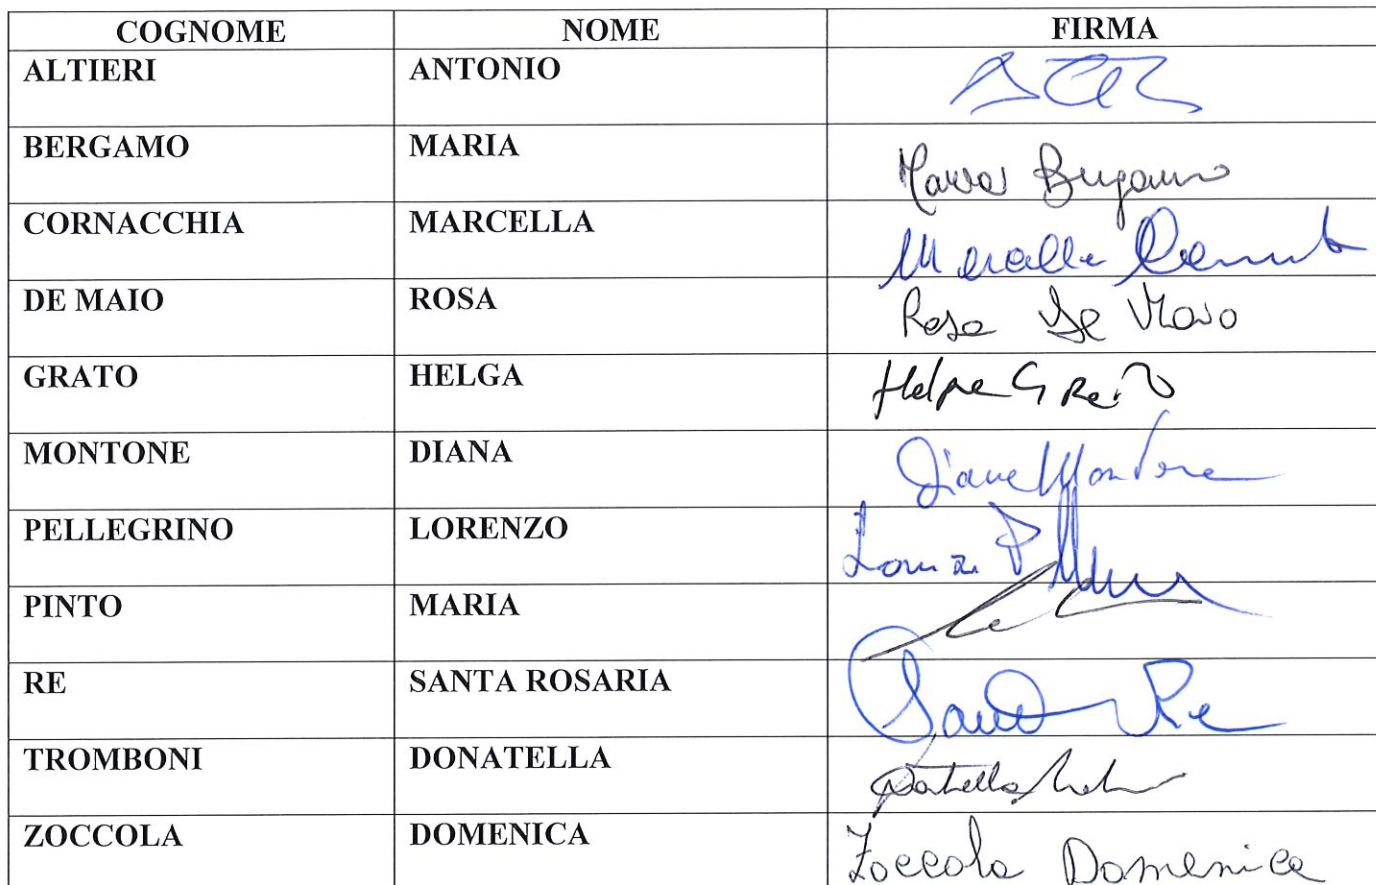 COGNOME NOME FIRMA
ALTIERI ANTONIO
BERGAMO MARIA Maria Bergamo
CORNACCHIA MARCELLA Marcella
DE MAIO ROSA Rosa De Maio
GRATO HELGA Helga Grato
MONTONE DIANA Diana Montone
PELLEGRINO LORENZO
PINTO MARIA
RE SANTA ROSARIA Santa Re
TROMBONI DONATELLA
ZOCCOLA DOMENICA Zoccola Domenica